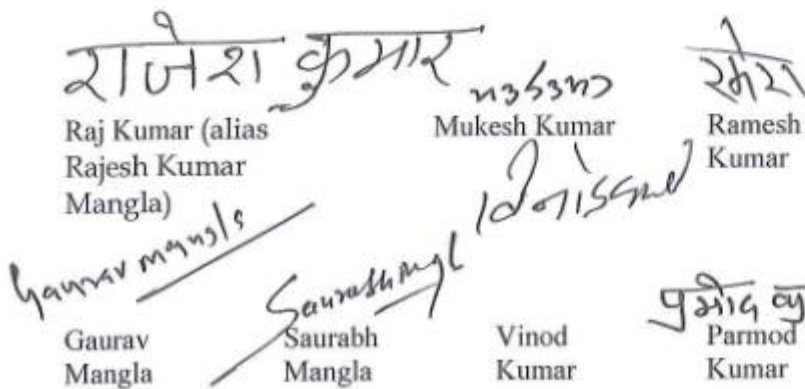 राजेश कुमार
Raj Kumar (alias
Rajesh Kumar
Mangla)
Mukesh Kumar
रमेश
Ramesh
Kumar
Gaurav Mangla
Saurabh Mangl
Gaurav
Mangla
Saurabh
Mangla
Vinod
Kumar
प्रमोद कु
Parmod
Kumar